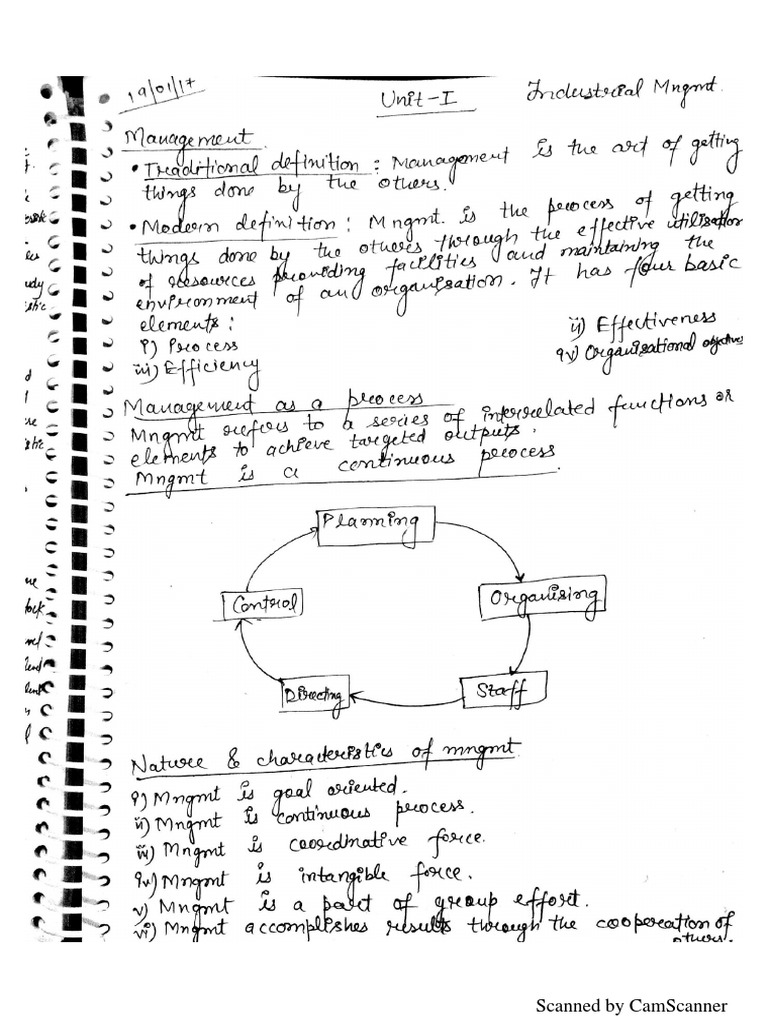 19/01/17
Unit-I
Industrial Mngmt.
Management
• Traditional definition : Management is the art of getting
things done by the others.
• Modern definition : Mngmt. is the process of getting
things done by the others through the effective utilisation
of resources providing facilities and maintaining the
environment of an organisation. It has four basic
elements:
i) Process
ii) Effectiveness
iii) Efficiency
iv) Organisational objectives
Management as a process
Mngmt refers to a series of interrelated functions or
elements to achieve targeted outputs.
Mngmt is a continuous process
Planning
Control
Organising
Directing
Staff
Nature & characteristics of mngmt
i) Mngmt is goal oriented.
ii) Mngmt is continuous process.
iii) Mngmt is coordinative force.
iv) Mngmt is intangible force.
v) Mngmt is a part of group effort.
vi) Mngmt accomplishes results through the cooperation of
others.
Scanned by CamScanner